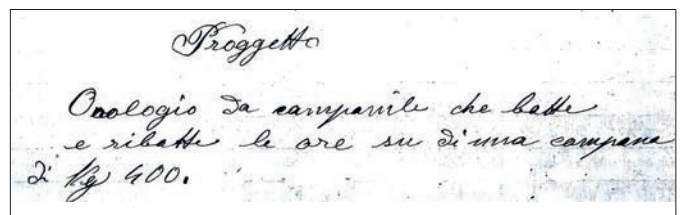 Proggetto
Orologio da campanile che batte
e ribatte le ore su di una campana
di Kg 400.